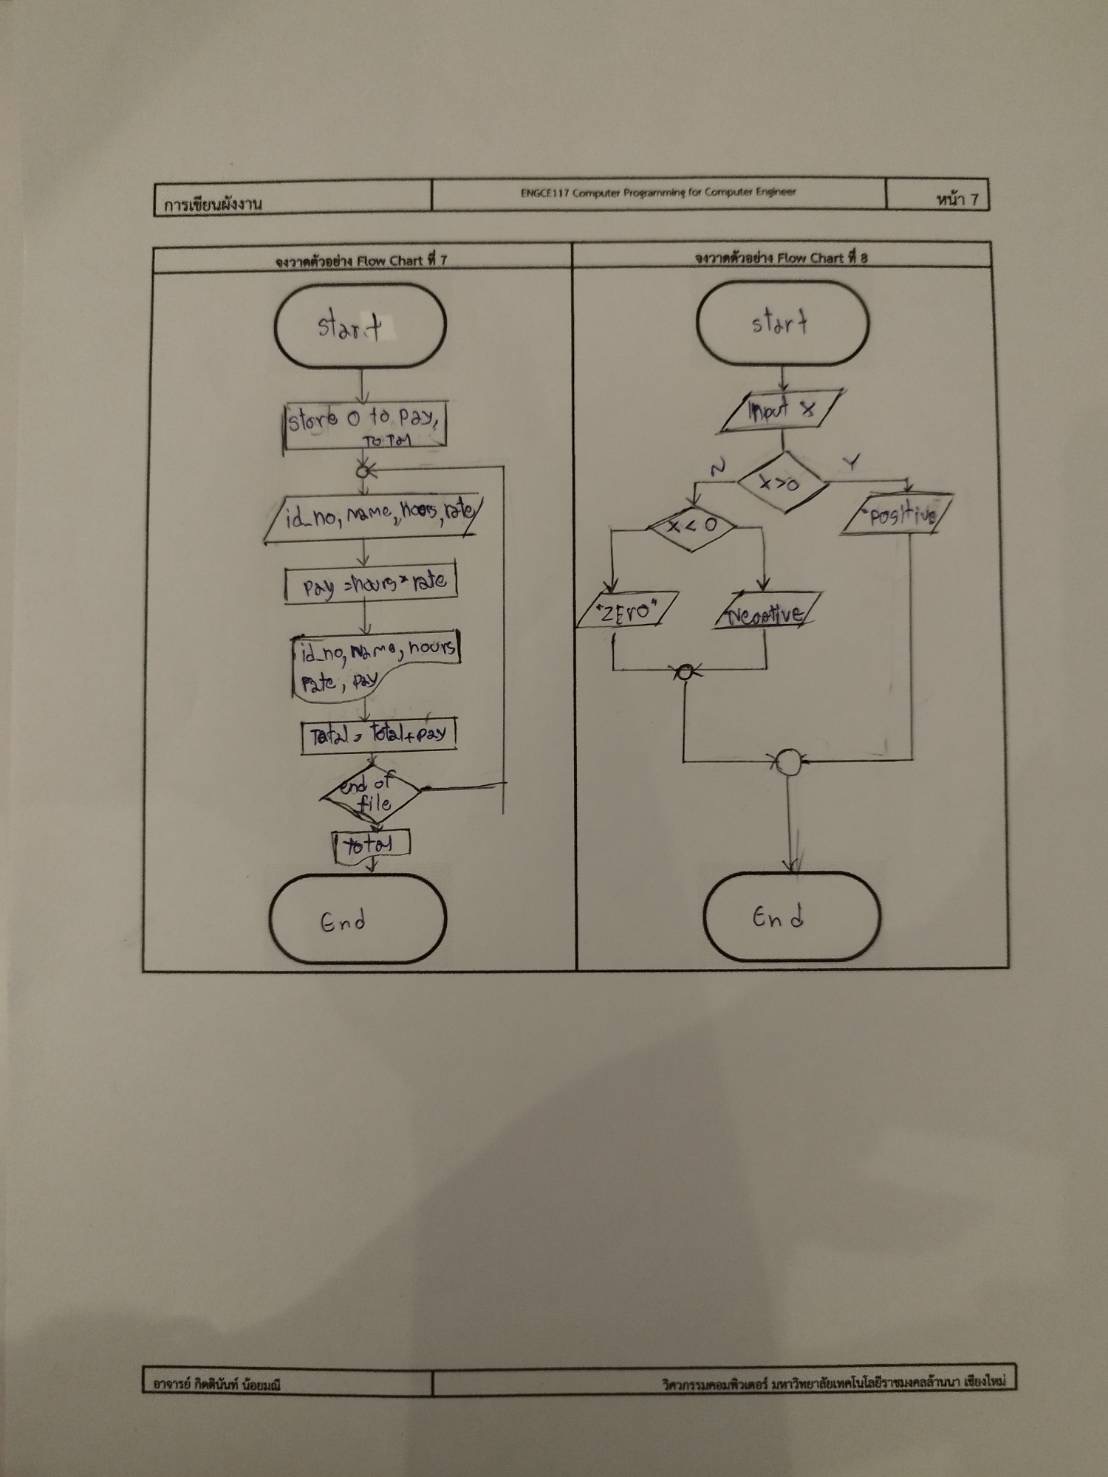 การเขียนผังงาน
ENGCE117 Computer Programming for Computer Engineer
หน้า 7
จงวาดตัวอย่าง Flow Chart ที่ 7
start
store 0 to pay,
TOTal
id_no, name, hours, rate
pay = hours * rate
id_no, name, hours
rate, pay
Total = total + pay
end of
file
total
End
จงวาดตัวอย่าง Flow Chart ที่ 8
start
Input x
N
x>0
Y
x<0
"positive
"ZEro"
Negative
End
อาจารย์ กิตตินันท์ น้อยมณี
วิศวกรรมคอมพิวเตอร์ มหาวิทยาลัยเทคโนโลยีราชมงคลล้านนา เชียงใหม่